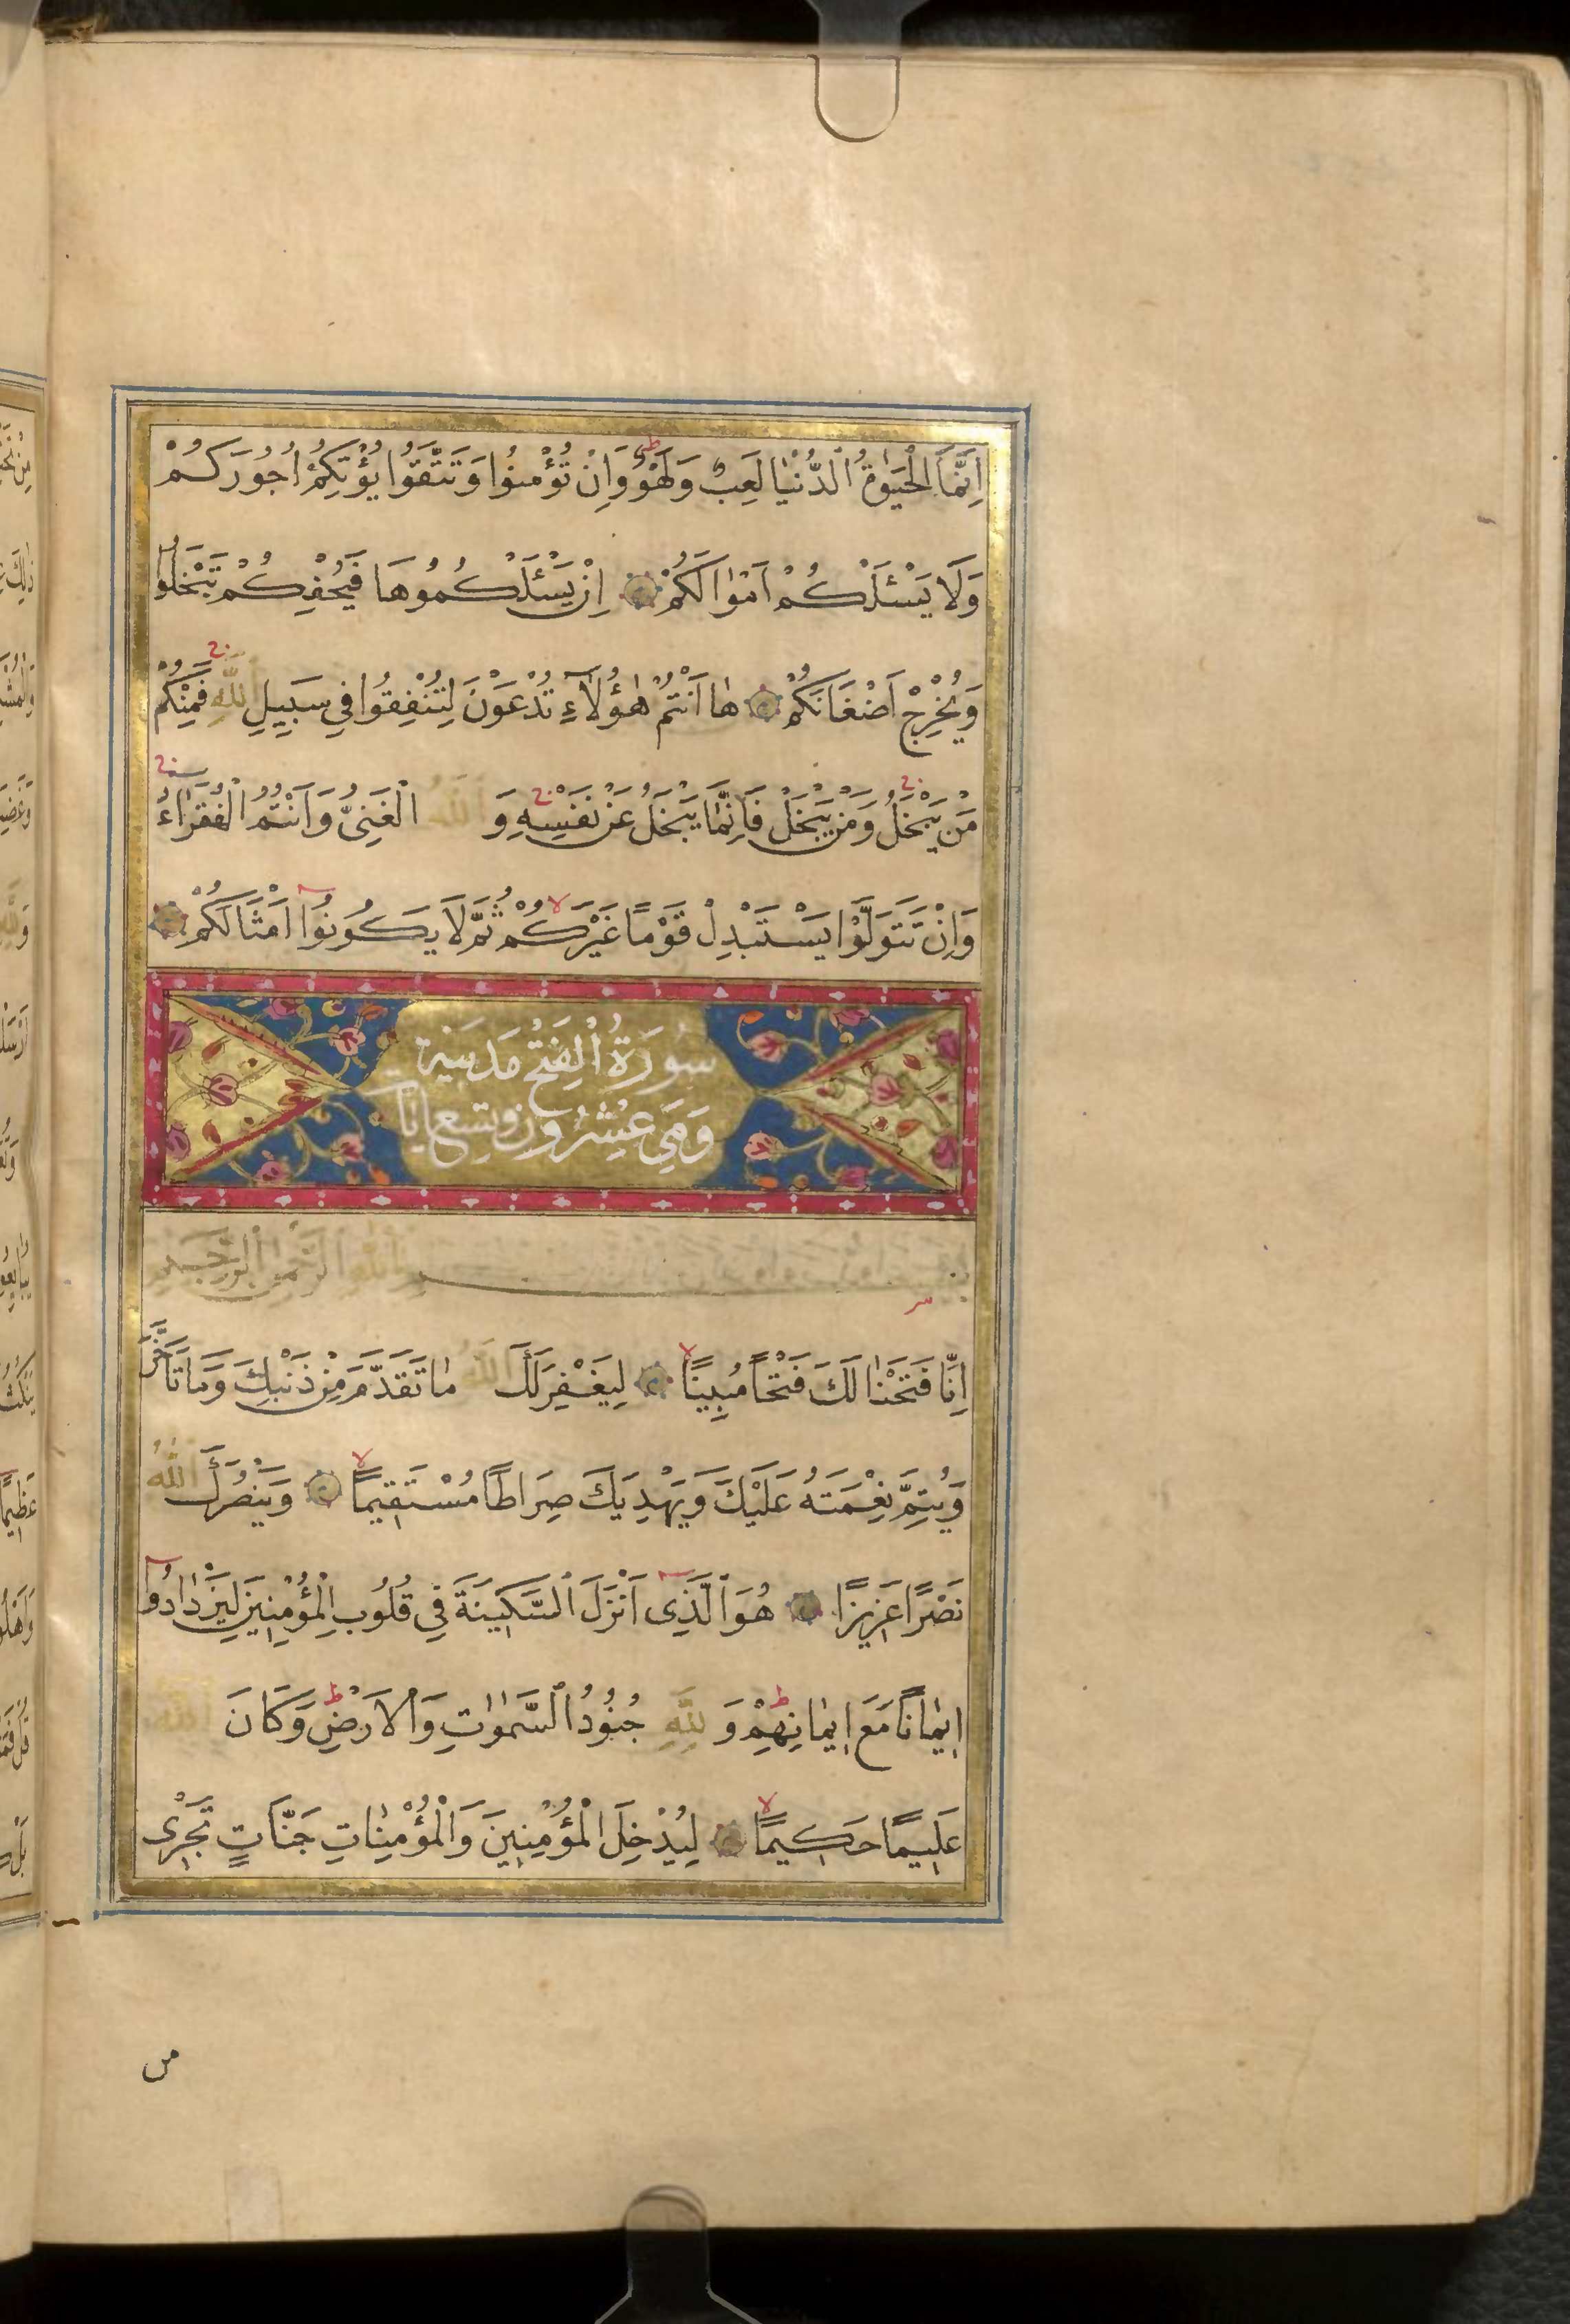 اِنَّمَا الْحَيٰوةُ الدُّنْيَا لَعِبٌ وَلَهْوٌ وَاِنْ تُؤْمِنُوا وَتَتَّقُوا يُؤْتِكُمْ اُجُورَكُمْ
وَلَا يَسْئَلْكُمْ اَمْوَالَكُمْ اِنْ يَسْئَلْكُمُوهَا فَيُحْفِكُمْ تَبْخَلُوا
وَيُخْرِجْ اَضْغَانَكُمْ هَا اَنْتُمْ هٰؤُلَاءِ تُدْعَوْنَ لِتُنْفِقُوا فِي سَبِيلِ اللّٰهِ فَمِنْكُمْ
مَنْ يَبْخَلُ وَمَنْ يَبْخَلْ فَاِنَّمَا يَبْخَلُ عَنْ نَفْسِهِ وَ اللّٰهُ الْغَنِيُّ وَاَنْتُمُ الْفُقَرَاءُ
وَاِنْ تَتَوَلَّوْا يَسْتَبْدِلْ قَوْمًا غَيْرَكُمْ ثُمَّ لَا يَكُونُوا اَمْثَالَكُمْ
سُورَةُ الْفَتْحِ مَدَنِيَة
وَهِيَ عِشْرُونَ وَتِسْع اٰيَات
بِسْمِ اللّٰهِ الرَّحْمٰنِ الرَّحِيمِ
اِنَّا فَتَحْنَا لَكَ فَتْحًا مُبِينًا لِيَغْفِرَ لَكَ اللّٰهُ مَا تَقَدَّمَ مِنْ ذَنْبِكَ وَمَا تَاَخَّرَ
وَيُتِمَّ نِعْمَتَهُ عَلَيْكَ وَيَهْدِيَكَ صِرَاطًا مُسْتَقِيمًا وَيَنْصُرَكَ اللّٰهُ
نَصْرًا عَزِيزًا هُوَ الَّذِى اَنْزَلَ السَّكِينَةَ فِي قُلُوبِ الْمُؤْمِنِينَ لِيَزْدَادُوا
اِيمَانًا مَعَ اِيمَانِهِمْ وَ لِلّٰهِ جُنُودُ السَّمٰوَاتِ وَالْاَرْضِ وَكَانَ اللّٰهُ
عَلِيمًا حَكِيمًا لِيُدْخِلَ الْمُؤْمِنِينَ وَالْمُؤْمِنَاتِ جَنَّاتٍ تَجْرِى
من